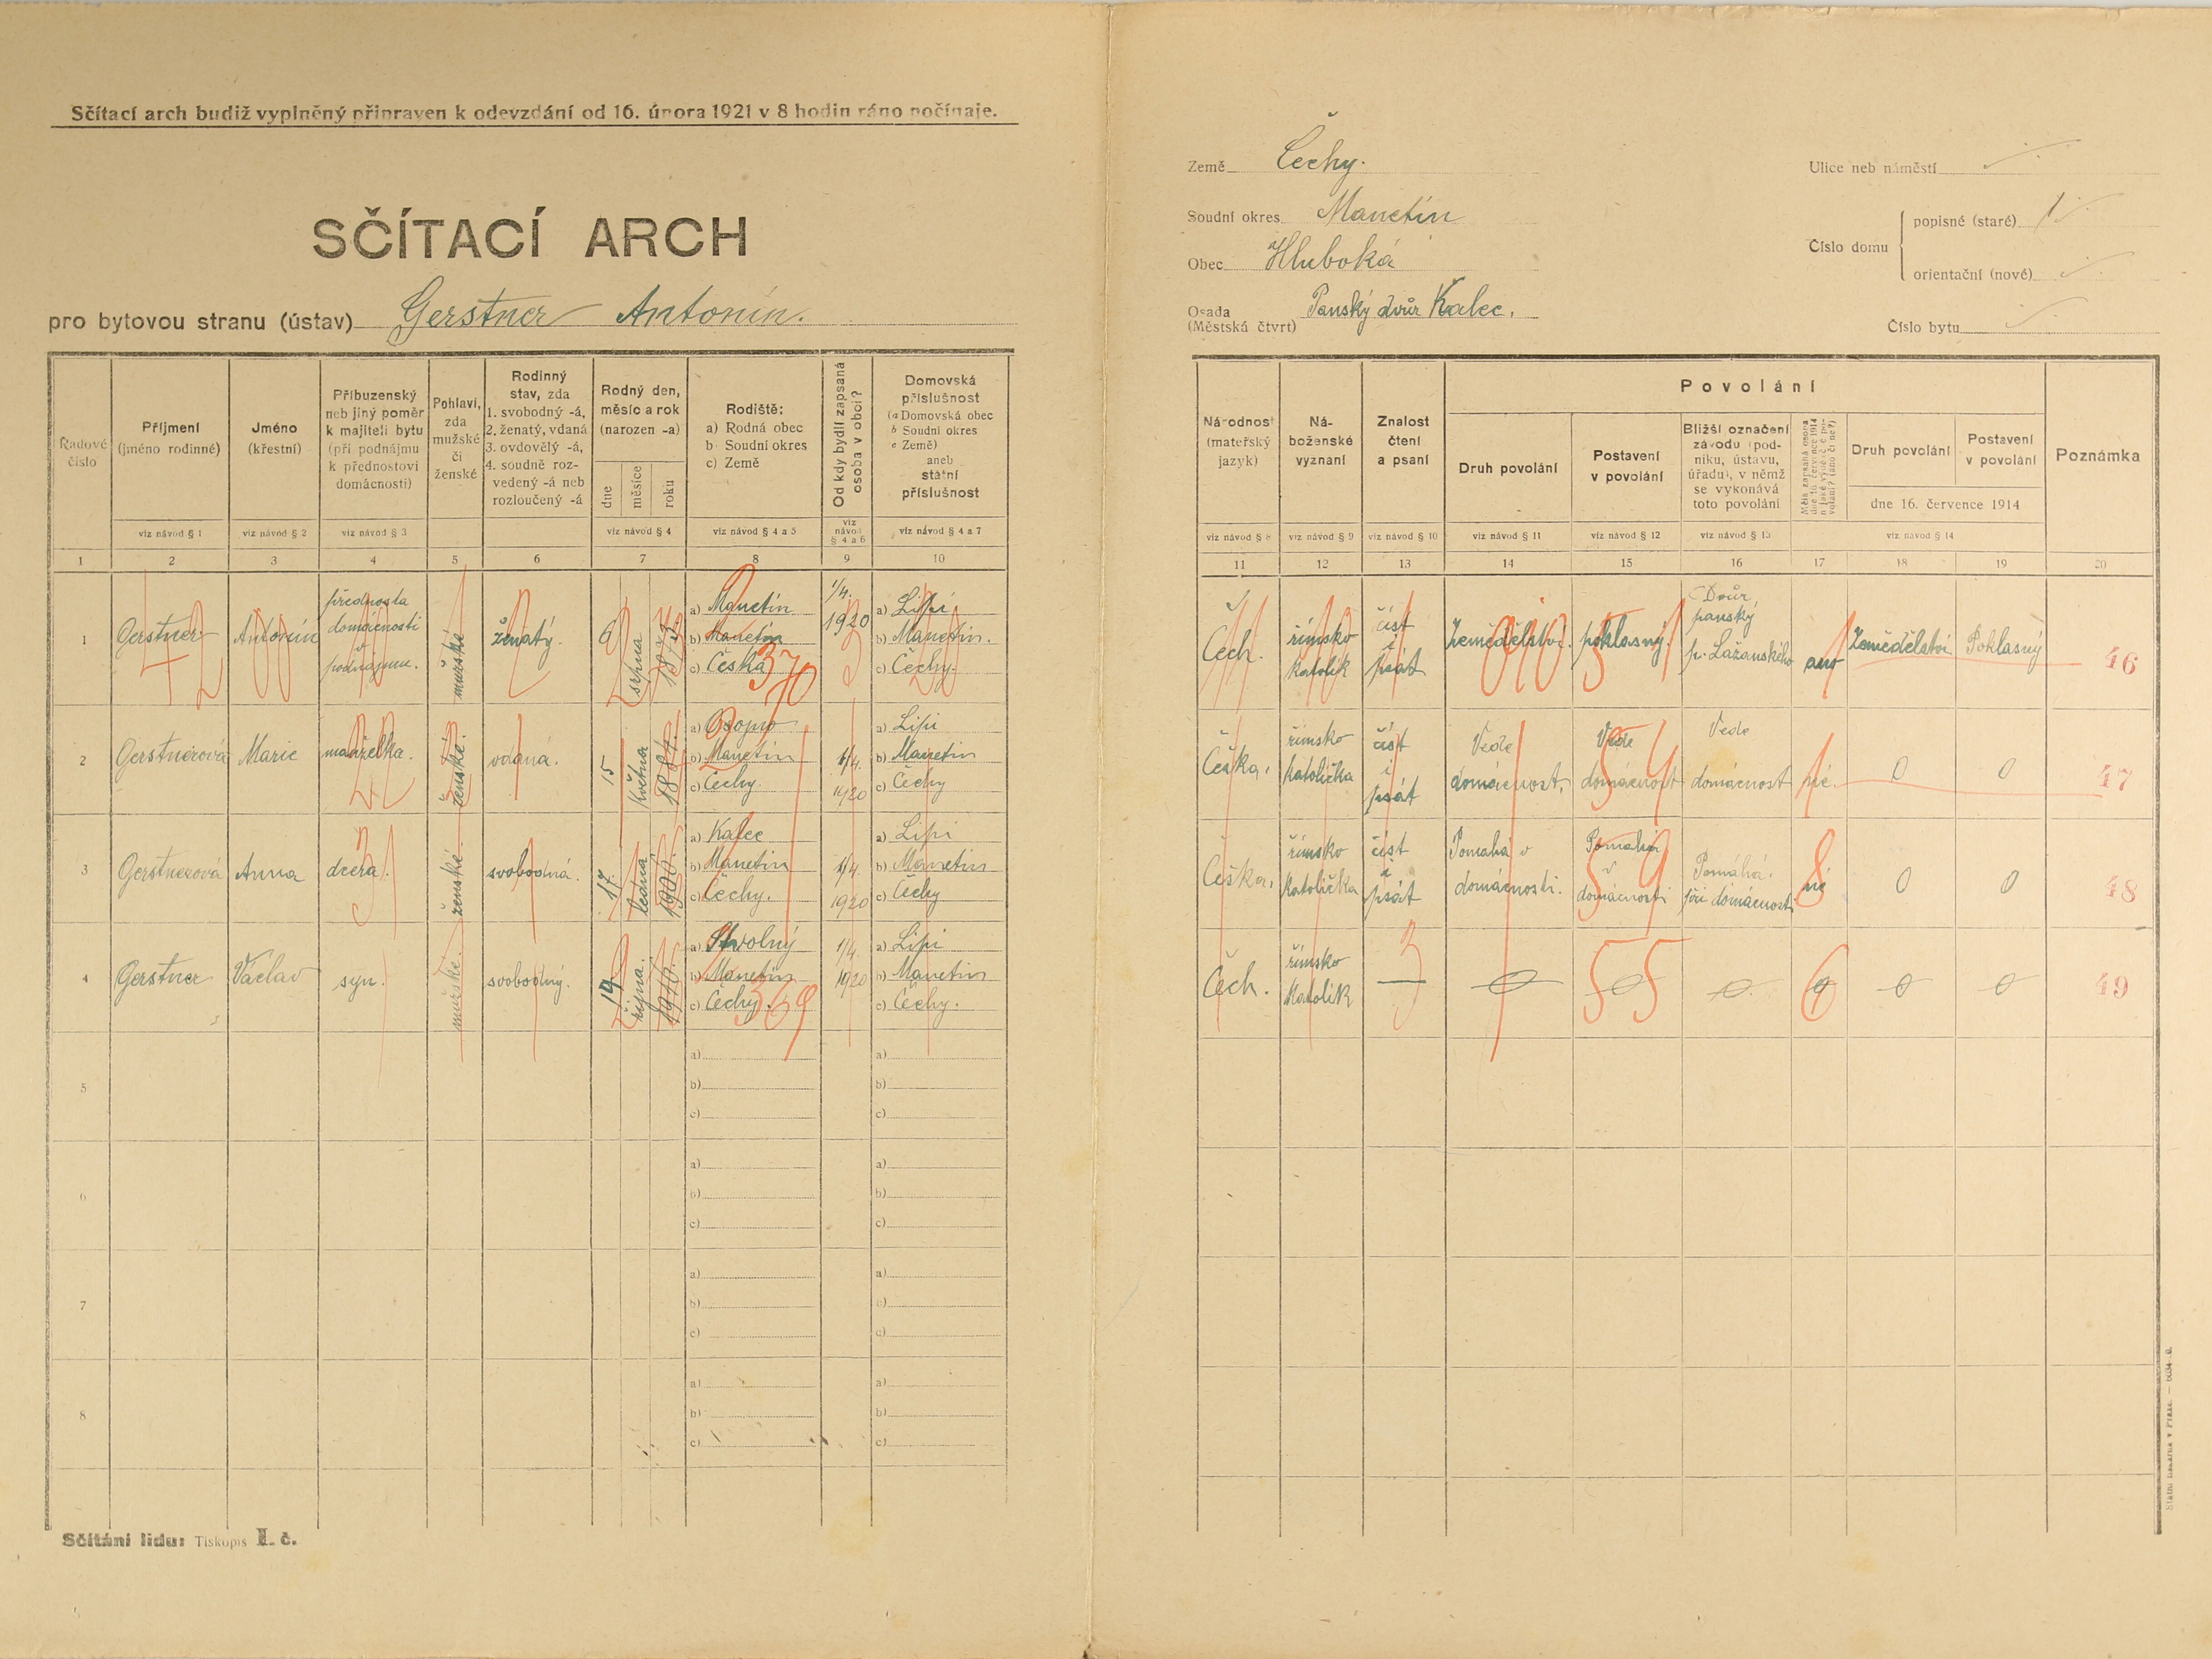 Sčítací arch budiž vyplněný připraven k odevzdání od 16. února 1921 v 8 hodin ráno počínaje.
SČÍTACÍ ARCH
pro bytovou stranu (ústav) Gerstner Antonín.
Země Čechy.
Soudní okres Manetín
Obec Hluboká
Osada (Městská čtvrt) Panský dvůr Kalec.
Ulice neb náměstí
Číslo domu
popisné (staré) 1
orientační (nové)
Číslo bytu
Řadové číslo
Příjmení (jméno rodinné)
Jméno (křestní)
Příbuzenský neb jiný poměr k majiteli bytu (při podnájmu k přednostovi domácnosti)
Pohlaví, zda mužské či ženské
Rodinný stav, zda 1. svobodný -á, 2. ženatý, vdaná 3. ovdovělý -á, 4. soudně rozvedený -á neb rozloučený -á
Rodný den, měsíc a rok (narozen -a)
dne měsíce roku
Rodiště: a) Rodná obec b) Soudní okres c) Země
Od kdy bydlí zapsaná osoba v obci?
Domovská příslušnost (a Domovská obec b Soudní okres c Země) aneb státní příslušnost
viz návod § 1 viz návod § 2 viz návod § 3 viz návod § 4 viz návod § 4 a 5 viz návod § 4 a 6 viz návod § 4 a 7
1 2 3 4 5 6 7 8 9 10
Národnost (mateřský jazyk)
Náboženské vyznání
Znalost čtení a psaní
Povolání
Druh povolání
Postavení v povolání
Bližší označení závodu (podniku, ústavu, úřadu), v němž se vykonává toto povolání
Druh povolání
Postavení v povolání
dne 16. července 1914
Poznámka
viz návod § 8 viz návod § 9 viz návod § 10 viz návod § 11 viz návod § 12 viz návod § 13 viz návod § 14
11 12 13 14 15 16 17 18 19 20
1 Gerstner Antonín přednosta domácnosti v podnájmu. mužské ženatý. srpna 1873
a) Manetín
b) Manetín
c) Česká
1/4. 1920
a) Lipí
b) Manetín.
c) Čechy.
Čech. římsko katolík číst i psát Zemědělství. poklasný. Dvůr panský p. Lažanského ano Zemědělství Poklasný 46
2 Gerstnerová Marie manželka. ženské. vdaná. 15 května
a)
b) Manetín
c) Čechy.
1/4. 1920
a) Lipí
b) Manetín
c) Čechy
Češka. římsko katolička číst i psát Vede domácnost. Vede domácnost Vede domácnost né. 0 0 47
3 Gerstnerová Anna dcera. ženské svobodná. 17. ledna
a) Kalec
b) Manetín
c) Čechy.
1/4 1920
a) Lipí
b) Manetín
c) Čechy
Češka. římsko katolička číst i psát Pomáhá v domácnosti. Pomáhá v domácnosti Pomáhá při domácnosti né 0 0 48
4 Gerstner Václav syn. mužské. svobodný. 19 října.
a) Stvolny
b) Manetín
c) Čechy.
1/4. 1920
a) Lipí
b) Manetín
c) Čechy.
Čech. římsko katolík — 0 0 0 0 0 0 49
5
a)
b)
c)
a)
b)
c)
6
a)
b)
c)
a)
b)
c)
7
a)
b)
c)
a)
b)
c)
8
a)
b)
c)
a)
b)
c)
Sčítání lidu: Tiskopis I. č.